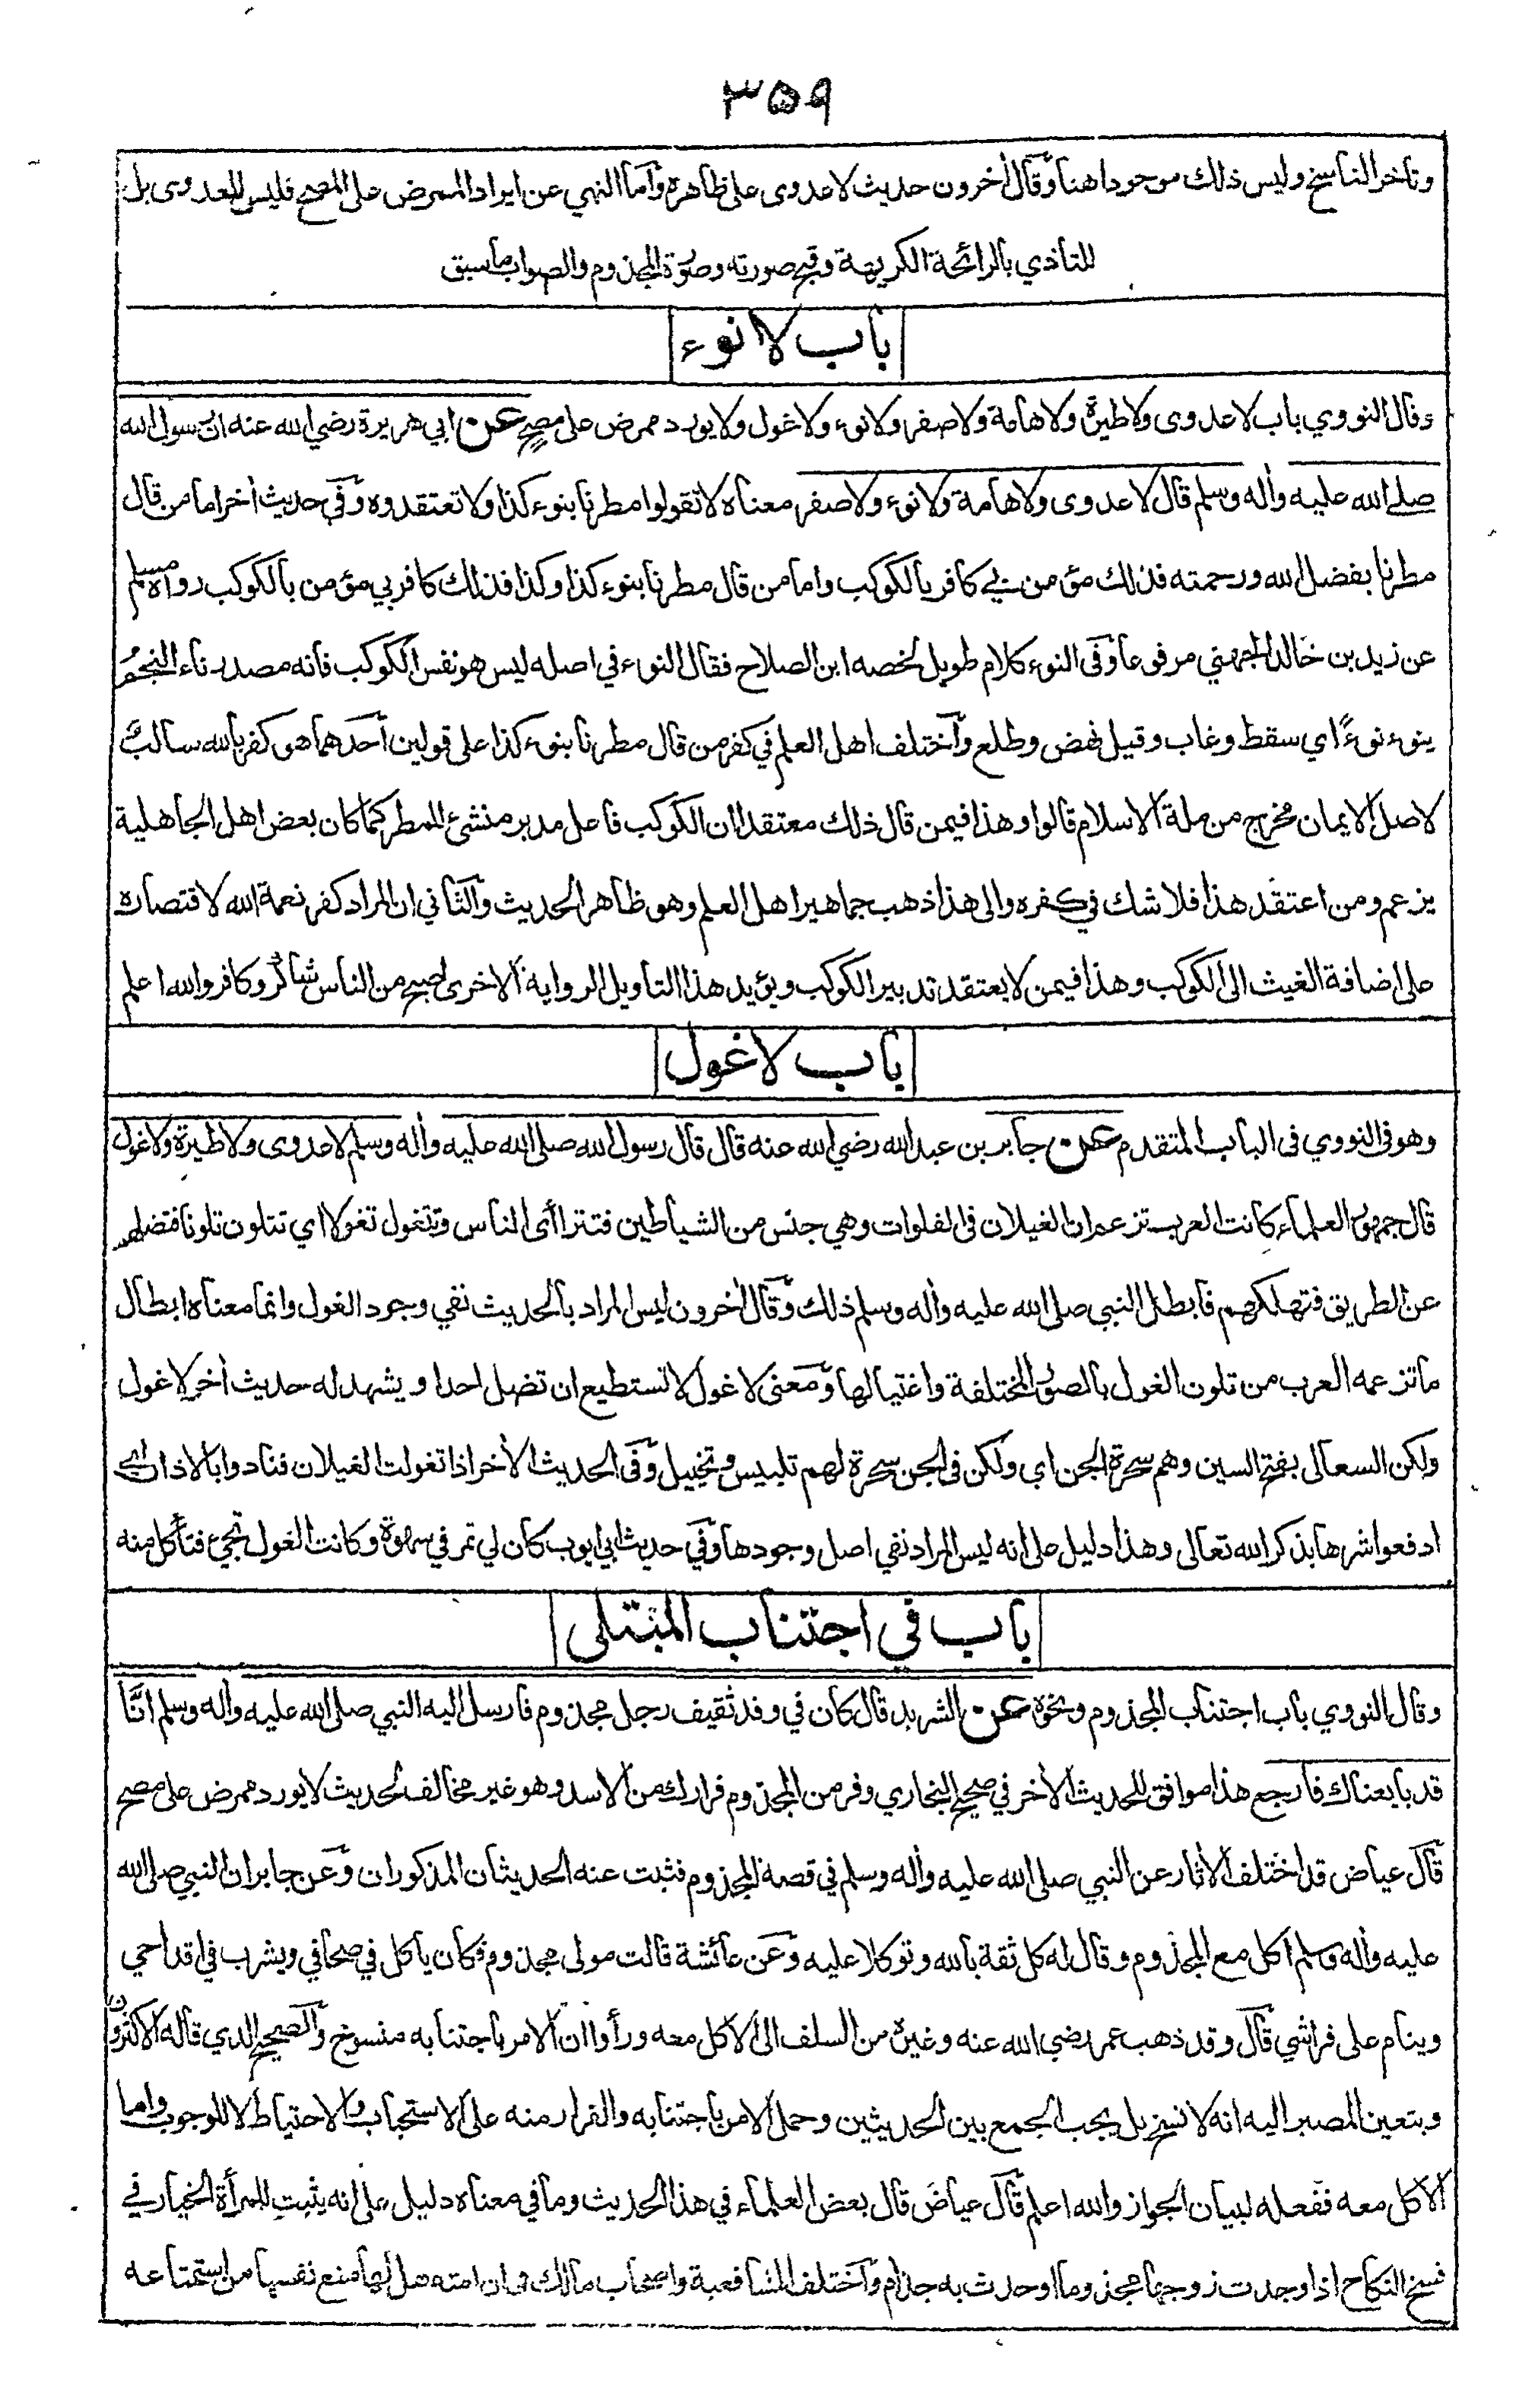 ۳۵۹
وتأخر الناسخ وليس ذلك موجودا هنا وقال أخرون حديث لا عدوى على ظاهره وأما النهي عن ايراد الممرض على المصح فليس للعدوى بل
للتاذي بالرائحة الكريهة وقبح صورته وصورة المجذوم والصواب ما سبق
باب لا نوء
وقال النووي باب لا عدوى ولا طيرة ولا هامة ولا صفر ولا نوء ولا غول ولا يورد ممرض على مصح عن ابي هريرة رضي الله عنه ان رسول الله
صلى الله عليه وأله وسلم قال لا عدوى ولا هامة ولا نوء ولا صفر معناه لا تقولوا مطرنا بنوء كذا ولا تعتقدوه وفي حديث أخر اما من قال
مطرنا بفضل الله ورحمته فذلك مؤمن بي كافر بالكوكب واما من قال مطرنا بنوء كذا وكذا فذلك كافر بي مؤمن بالكوكب رواه مسلم
عن زيد بن خالد الجهني مرفوعا وفى النوء كلام طويل لخصه ابن الصلاح فقال النوء في اصله ليس هو نفس الكوكب فانه مصدر ناء النجم
ينوء نوءً اي سقط وغاب وقيل نهض وطلع واختلف اهل العلم في كفر من قال مطرنا بنوء كذا على قولين أحدهما هو كفر بالله سالب
لاصل الايمان مخرج من ملة الاسلام قالوا وهذا فيمن قال ذلك معتقدا ان الكوكب فاعل مدبر منشئ للمطر كما كان بعض اهل الجاهلية
يزعم ومن اعتقد هذا فلا شك في كفره والى هذا ذهب جماهير اهل العلم وهو ظاهر الحديث والثاني ان المراد كفر نعمة الله لاقتصاره
على اضافة الغيث الى الكوكب وهذا فيمن لا يعتقد تدبير الكوكب ويؤيد هذا التاويل الرواية الاخرى اصبح من الناس شاكر وكافر والله اعلم
باب لا غول
وهو فى النووي فى الباب المتقدم عن جابر بن عبد الله رضي الله عنه قال قال رسول الله صلى الله عليه وأله وسلم لا عدوى ولا طيرة ولا غول
قال جمهور العلماء كانت العرب تزعم ان الغيلان فى الفلوات وهي جنس من الشياطين فتتراأى الناس وتتغول تغولا اي تتلون تلونا فتضلهم
عن الطريق فتهلكهم فابطل النبي صلى الله عليه وأله وسلم ذلك وقال أخرون ليس المراد بالحديث نفي وجود الغول وانما معناه ابطال
ما تزعمه العرب من تلون الغول بالصور المختلفة واغتيالها ومعنى لا غول لا تستطيع ان تضل احدا ويشهد له حديث أخر لا غول
ولكن السعالى بفتح السين وهم سحرة الجن اي ولكن فى الجن سحرة لهم تلبيس وتخييل وفى الحديث الأخر اذا تغولت الغيلان فنادوا بالاذان اي
ادفعوا شرها بذكر الله تعالى وهذا دليل على انه ليس المراد نفي اصل وجودها وفي حديث ابي ايوب كان لي تمر في سهوة وكانت الغول تجيئ فتأكل منه
باب في اجتناب المبتلى
وقال النووي باب اجتناب المجذوم ونحوه عن الشريد قال كان في وفد ثقيف رجل مجذوم فارسل اليه النبي صلى الله عليه وأله وسلم انّا
قد بايعناك فارجع هذا موافق للحديث الأخر في صحيح البخاري وفر من المجذوم فرارك من الاسد وهو غير مخالف لحديث لا يورد ممرض على مصح
قال عياض قد اختلف الأثار عن النبي صلى الله عليه وأله وسلم في قصة المجذوم فثبت عنه الحديثان المذكوران وعن جابر ان النبي صلى الله
عليه وأله وسلم اكل مع المجذوم وقال له كل ثقة بالله وتوكلا عليه وعن عائشة قالت مولى مجذوم فكان ياكل في صحافي ويشرب في اقداحي
وينام على فراشي قال وقد ذهب عمر رضي الله عنه وغيره من السلف الى الاكل معه ورأوا ان الامر باجتنابه منسوخ والصحيح الذي قاله الاكثرون
ويتعين المصير اليه انه لا نسخ بل يجب الجمع بين الحديثين وحمل الامر باجتنابه والفرار منه على الاستحباب والاحتياط لا للوجوب واما
الاكل معه ففعله لبيان الجواز والله اعلم قال عياض قال بعض العلماء في هذا الحديث وما في معناه دليل على انه يثبت للمرأة الخيار في
فسخ النكاح اذا وجدت زوجها مجذوما او حدث به جذام واختلف الشافعية واصحاب مالك في ان امته هل لها منع نفسها من استمتاعه